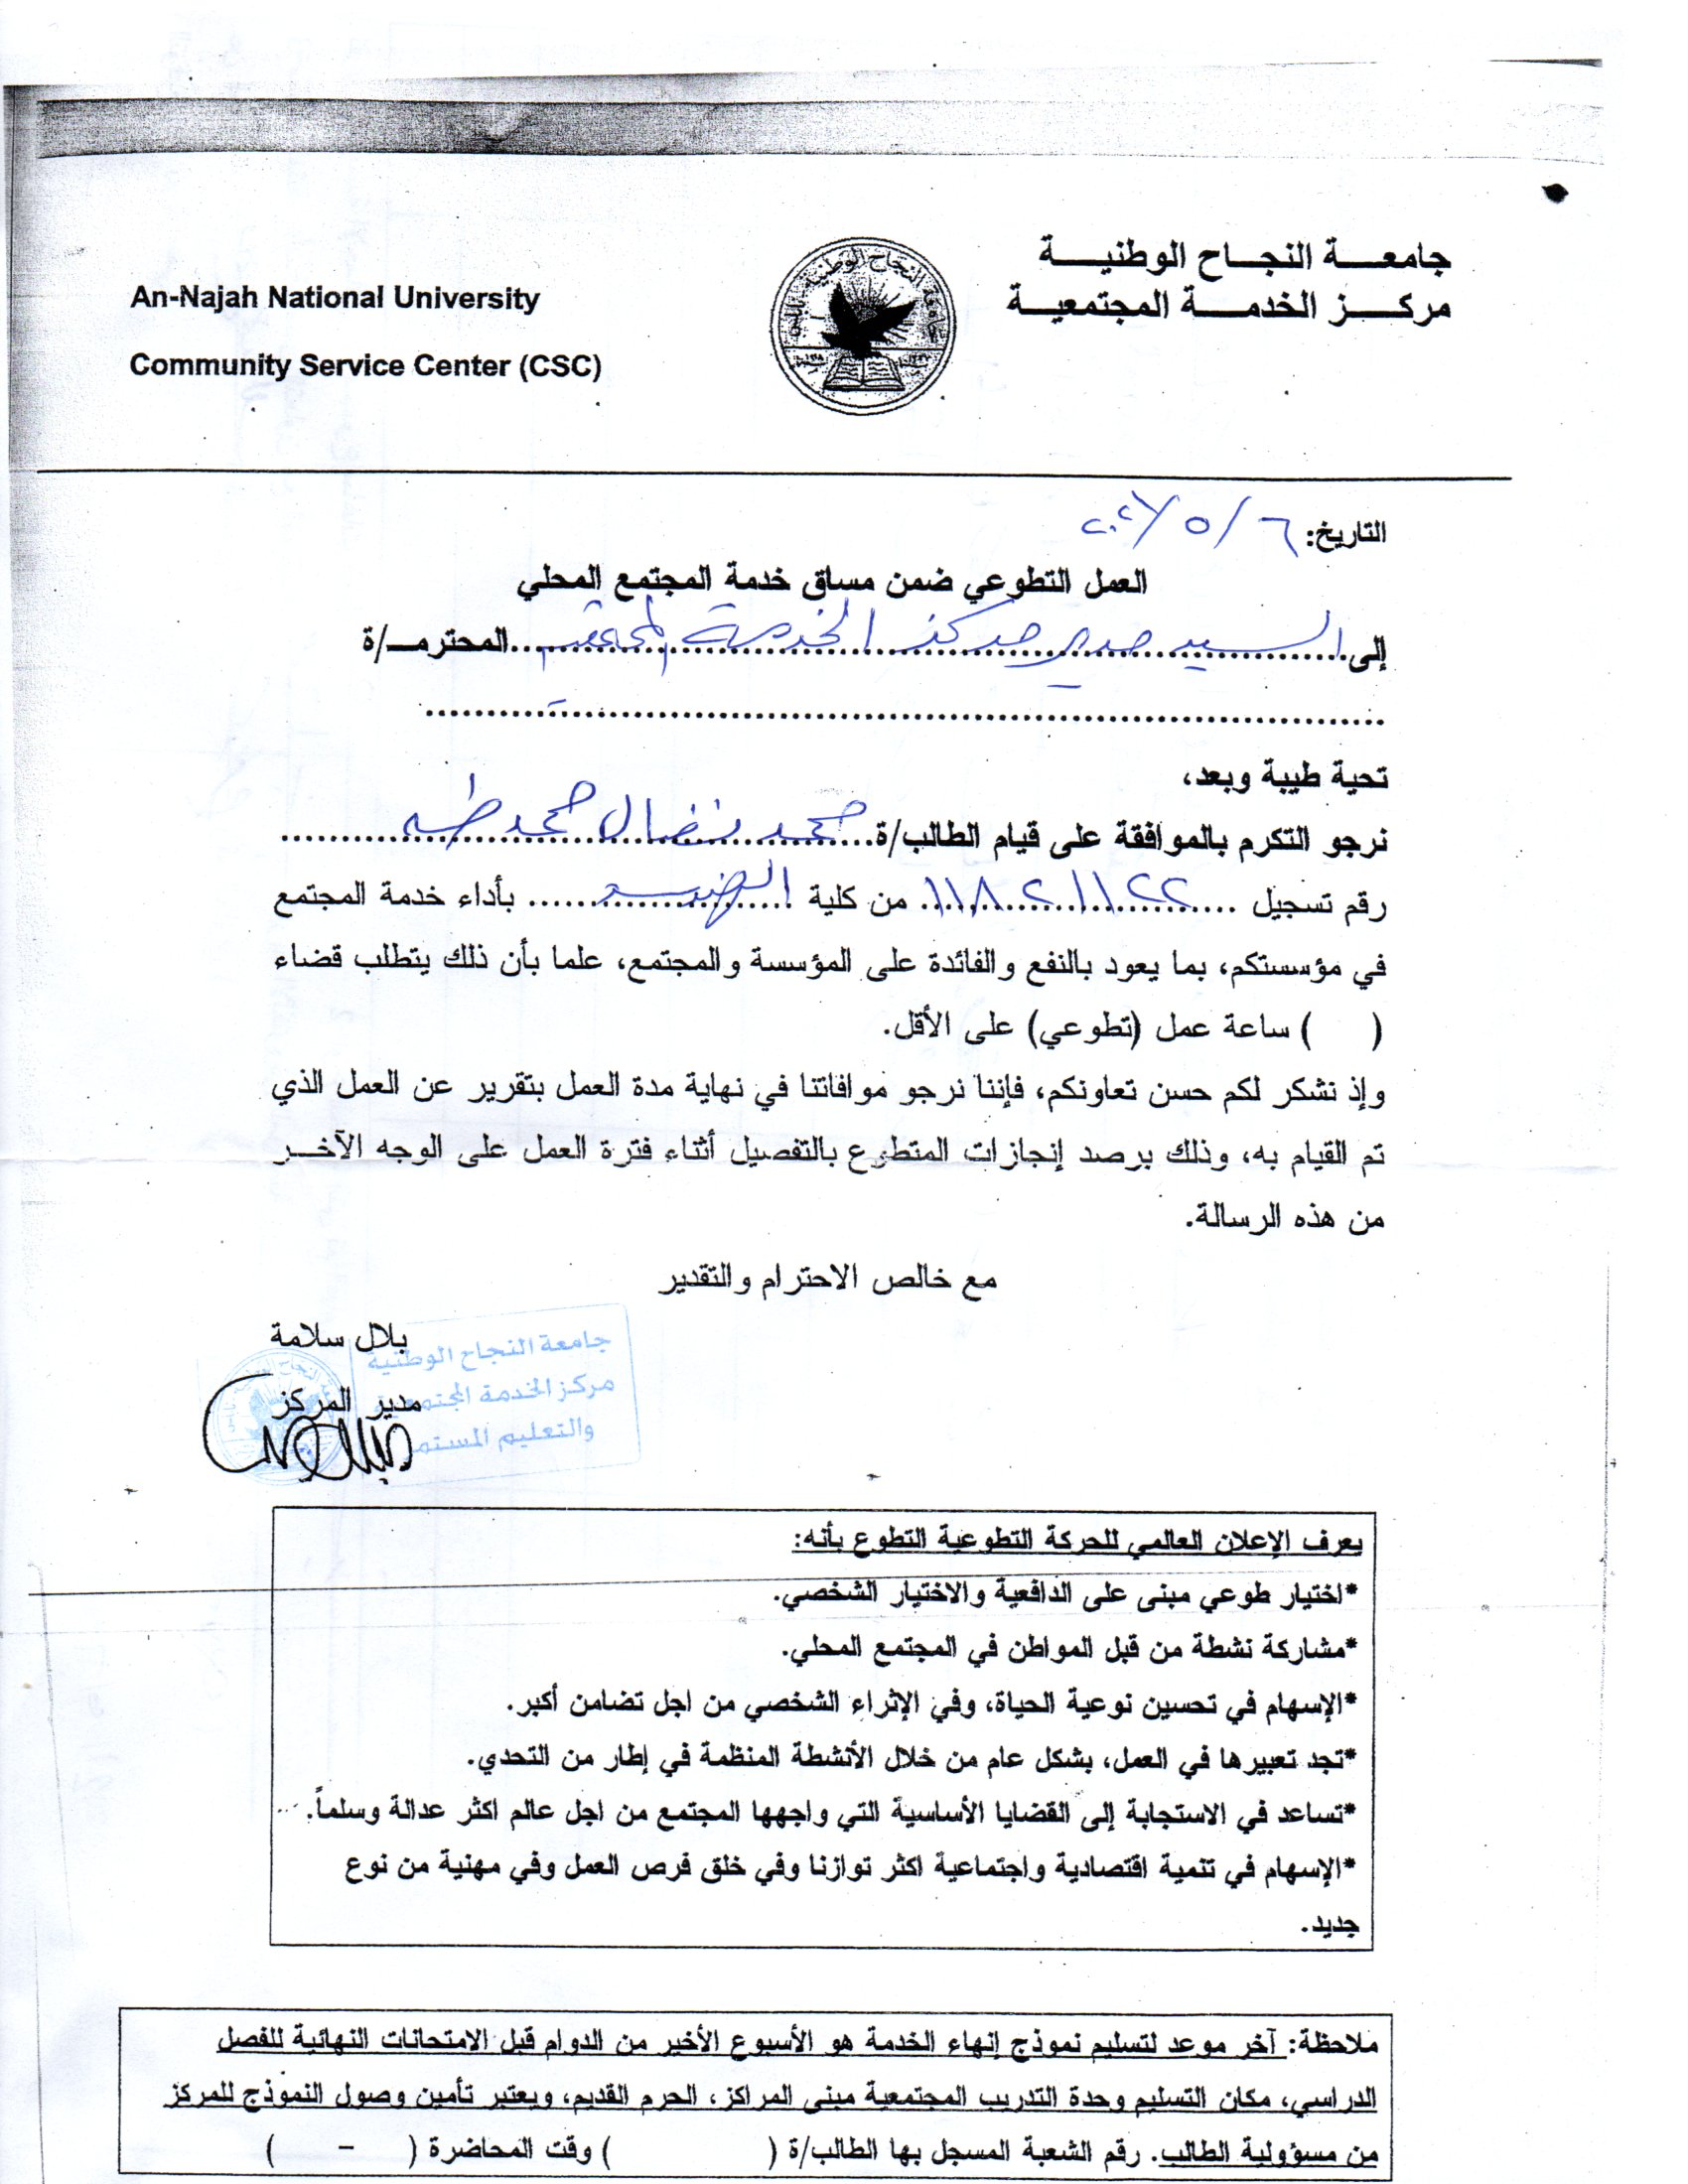 جامعة النجاح الوطنية
مركز الخدمة المجتمعية
An-Najah National University
Community Service Center (CSC)
التاريخ: ٦ / ٥ / ٢٠٢١
العمل التطوعي ضمن مساق خدمة المجتمع المحلي
إلى السيد مدير مركز الخدمة المجتمعية المحترم/ة
تحية طيبة وبعد،
نرجو التكرم بالموافقة على قيام الطالب/ة محمد نضال محمد طه
رقم تسجيل ١١٨٢١١٢٢ من كلية الهندسة بأداء خدمة المجتمع
في مؤسستكم، بما يعود بالنفع والفائدة على المؤسسة والمجتمع، علما بأن ذلك يتطلب قضاء
( ) ساعة عمل (تطوعي) على الأقل.
وإذ نشكر لكم حسن تعاونكم، فإننا نرجو موافاتنا في نهاية مدة العمل بتقرير عن العمل الذي
تم القيام به، وذلك برصد إنجازات المتطوع بالتفصيل أثناء فترة العمل على الوجه الآخر
من هذه الرسالة.
مع خالص الاحترام والتقدير
بلال سلامة
مدير المركز
جامعة النجاح الوطنية
مركز الخدمة المجتمعية
والتعليم المستمر
يعرف الإعلان العالمي للحركة التطوعية التطوع بأنه:
*اختيار طوعي مبنى على الدافعية والاختيار الشخصي.
*مشاركة نشطة من قبل المواطن في المجتمع المحلي.
*الإسهام في تحسين نوعية الحياة، وفي الإثراء الشخصي من اجل تضامن أكبر.
*تجد تعبيرها في العمل، بشكل عام من خلال الأنشطة المنظمة في إطار من التحدي.
*تساعد في الاستجابة إلى القضايا الأساسية التي واجهها المجتمع من اجل عالم اكثر عدالة وسلماً.
*الإسهام في تنمية اقتصادية واجتماعية اكثر توازنا وفي خلق فرص العمل وفي مهنية من نوع
جديد.
ملاحظة: آخر موعد لتسليم نموذج إنهاء الخدمة هو الأسبوع الأخير من الدوام قبل الامتحانات النهائية للفصل
الدراسي، مكان التسليم وحدة التدريب المجتمعية مبنى المراكز، الحرم القديم، ويعتبر تأمين وصول النموذج للمركز
من مسؤولية الطالب. رقم الشعبة المسجل بها الطالب/ة ( ) وقت المحاضرة ( - )